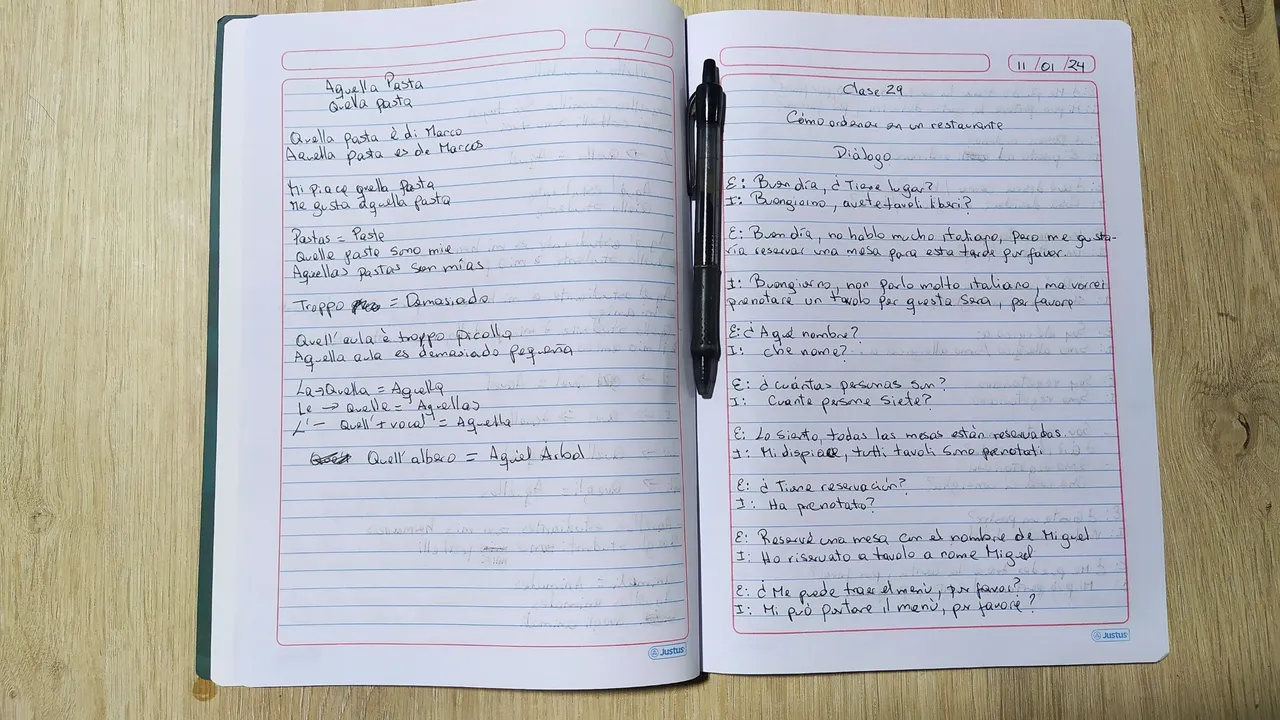 Aquella Pasta
Quella pasta
Quella pasta è di Marco
Aquella pasta es de Marcos
Mi piace quella pasta
Me gusta aquella pasta
Pastas = Paste
Quelle paste sono mie
Aquellas pastas son mías
Troppo = Demasiado
Quell'aula è troppo picolla
Aquella aula es demasiado pequeña
La → Quella = Aquella
Le → Quelle = Aquellas
L' — Quell' + vocal = Aquella
Quell'albero = Aquel Árbol
Justus
11/01/24
Clase 29
Cómo ordenar en un restaurante
Diálogo
E: Buen día, ¿Tiene lugar?
I: Buongiorno, avete tavoli liberi?
E: Buen día, no hablo mucho italiano, pero me gusta-
ría reservar una mesa para esta tarde por favor.
I: Buongiorno, non parlo molto italiano, ma vorrei
prenotare un tavolo per questa sera, per favore
E: ¿A qué nombre?
I: che nome?
E: ¿cuántas personas son?
I: Cuante persone siete?
E: Lo siento, todas las mesas están reservadas.
I: Mi dispiace, tutti tavoli sono prenotati.
E: ¿Tiene reservación?
I: Ha prenotato?
E: Reservé una mesa con el nombre de Miguel
I: Ho riservato a tavolo a nome Miguel
E: ¿Me puede traer el menú, por favor?
I: Mi può portare il menù, por favore?
Justus